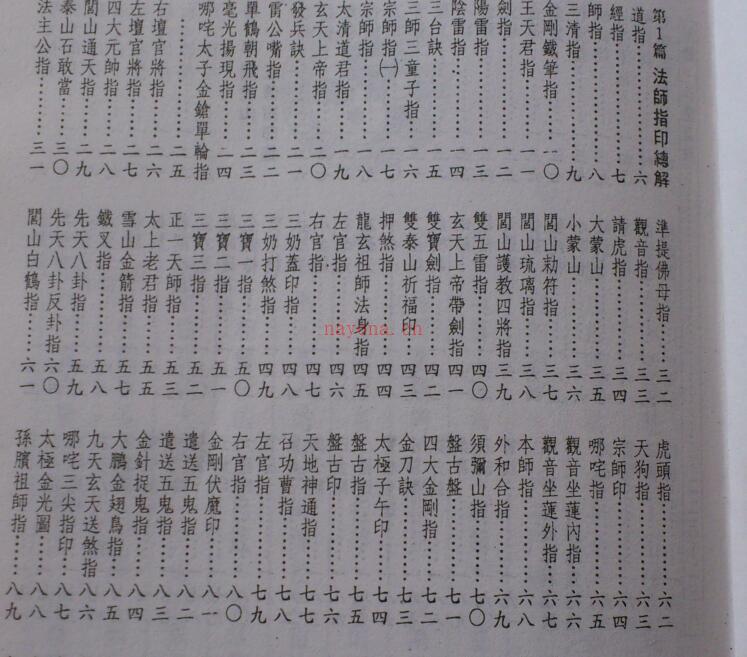 第1篇 法師指印總解
道指……六
經指……七
師指……八
三清指……九
金剛鐵筆指……一〇
王天君指……一一
劍指……一二
陽雷指……一三
陰雷指……一四
三台訣……一五
三師三童子指……一六
宗師指㈠……一七
宗師指……一八
太清道君指……一九
玄天上帝指……二〇
發兵訣……二一
雷公嘴指……二二
單鶴朝飛指……二三
毫光揚現指……二四
哪吒太子金鎗單輪指
……二五
右壇官將指……二六
左壇官將指……二七
四大元帥指……二八
閭山通天指……二九
泰山石敢當……三〇
法主公指……三一
準提佛母指……三二
觀音指……三三
請虎指……三四
大蒙山……三五
小蒙山……三六
閭山勅符指……三七
閭山琉璃指……三八
閭山護教四將指……三九
雙五雷指……四〇
玄天上帝帶劍指……四一
雙寶劍指……四二
雙泰山祈福印……四三
押煞指……四四
龍玄祖師法身指……四五
左官指……四六
右官指……四七
三奶蓋印指……四八
三奶打煞指……四九
三寶一指……五〇
三寶二指……五一
三寶三指……五二
正一天師指……五三
太上老君指……五五
雪山金箭指……五七
鐵叉指……五八
先天八卦指……五九
先天八卦反卦指……六〇
閭山白鶴指……六一
虎頭指……六二
天狗指……六三
宗師印……六四
哪吒指……六五
觀音坐蓮內指……六六
觀音坐蓮外指……六七
本師指……六八
外和合指……六九
須彌山指……七〇
盤古盤……七一
四大金剛指……七二
金刀訣……七三
太極子午印……七四
盤古指……七五
盤古印……七六
天地神通指……七七
召功曹指……七八
左官指……七九
右官指……八〇
金剛伏魔印……八一
遣送五鬼指……八二
遣送五鬼指……八三
金針捉鬼指……八四
大鵬金翅鳥指……八五
九天玄天送煞指……八六
哪吒三尖指印……八七
太極金光圖……八八
孫臏祖師指……八九